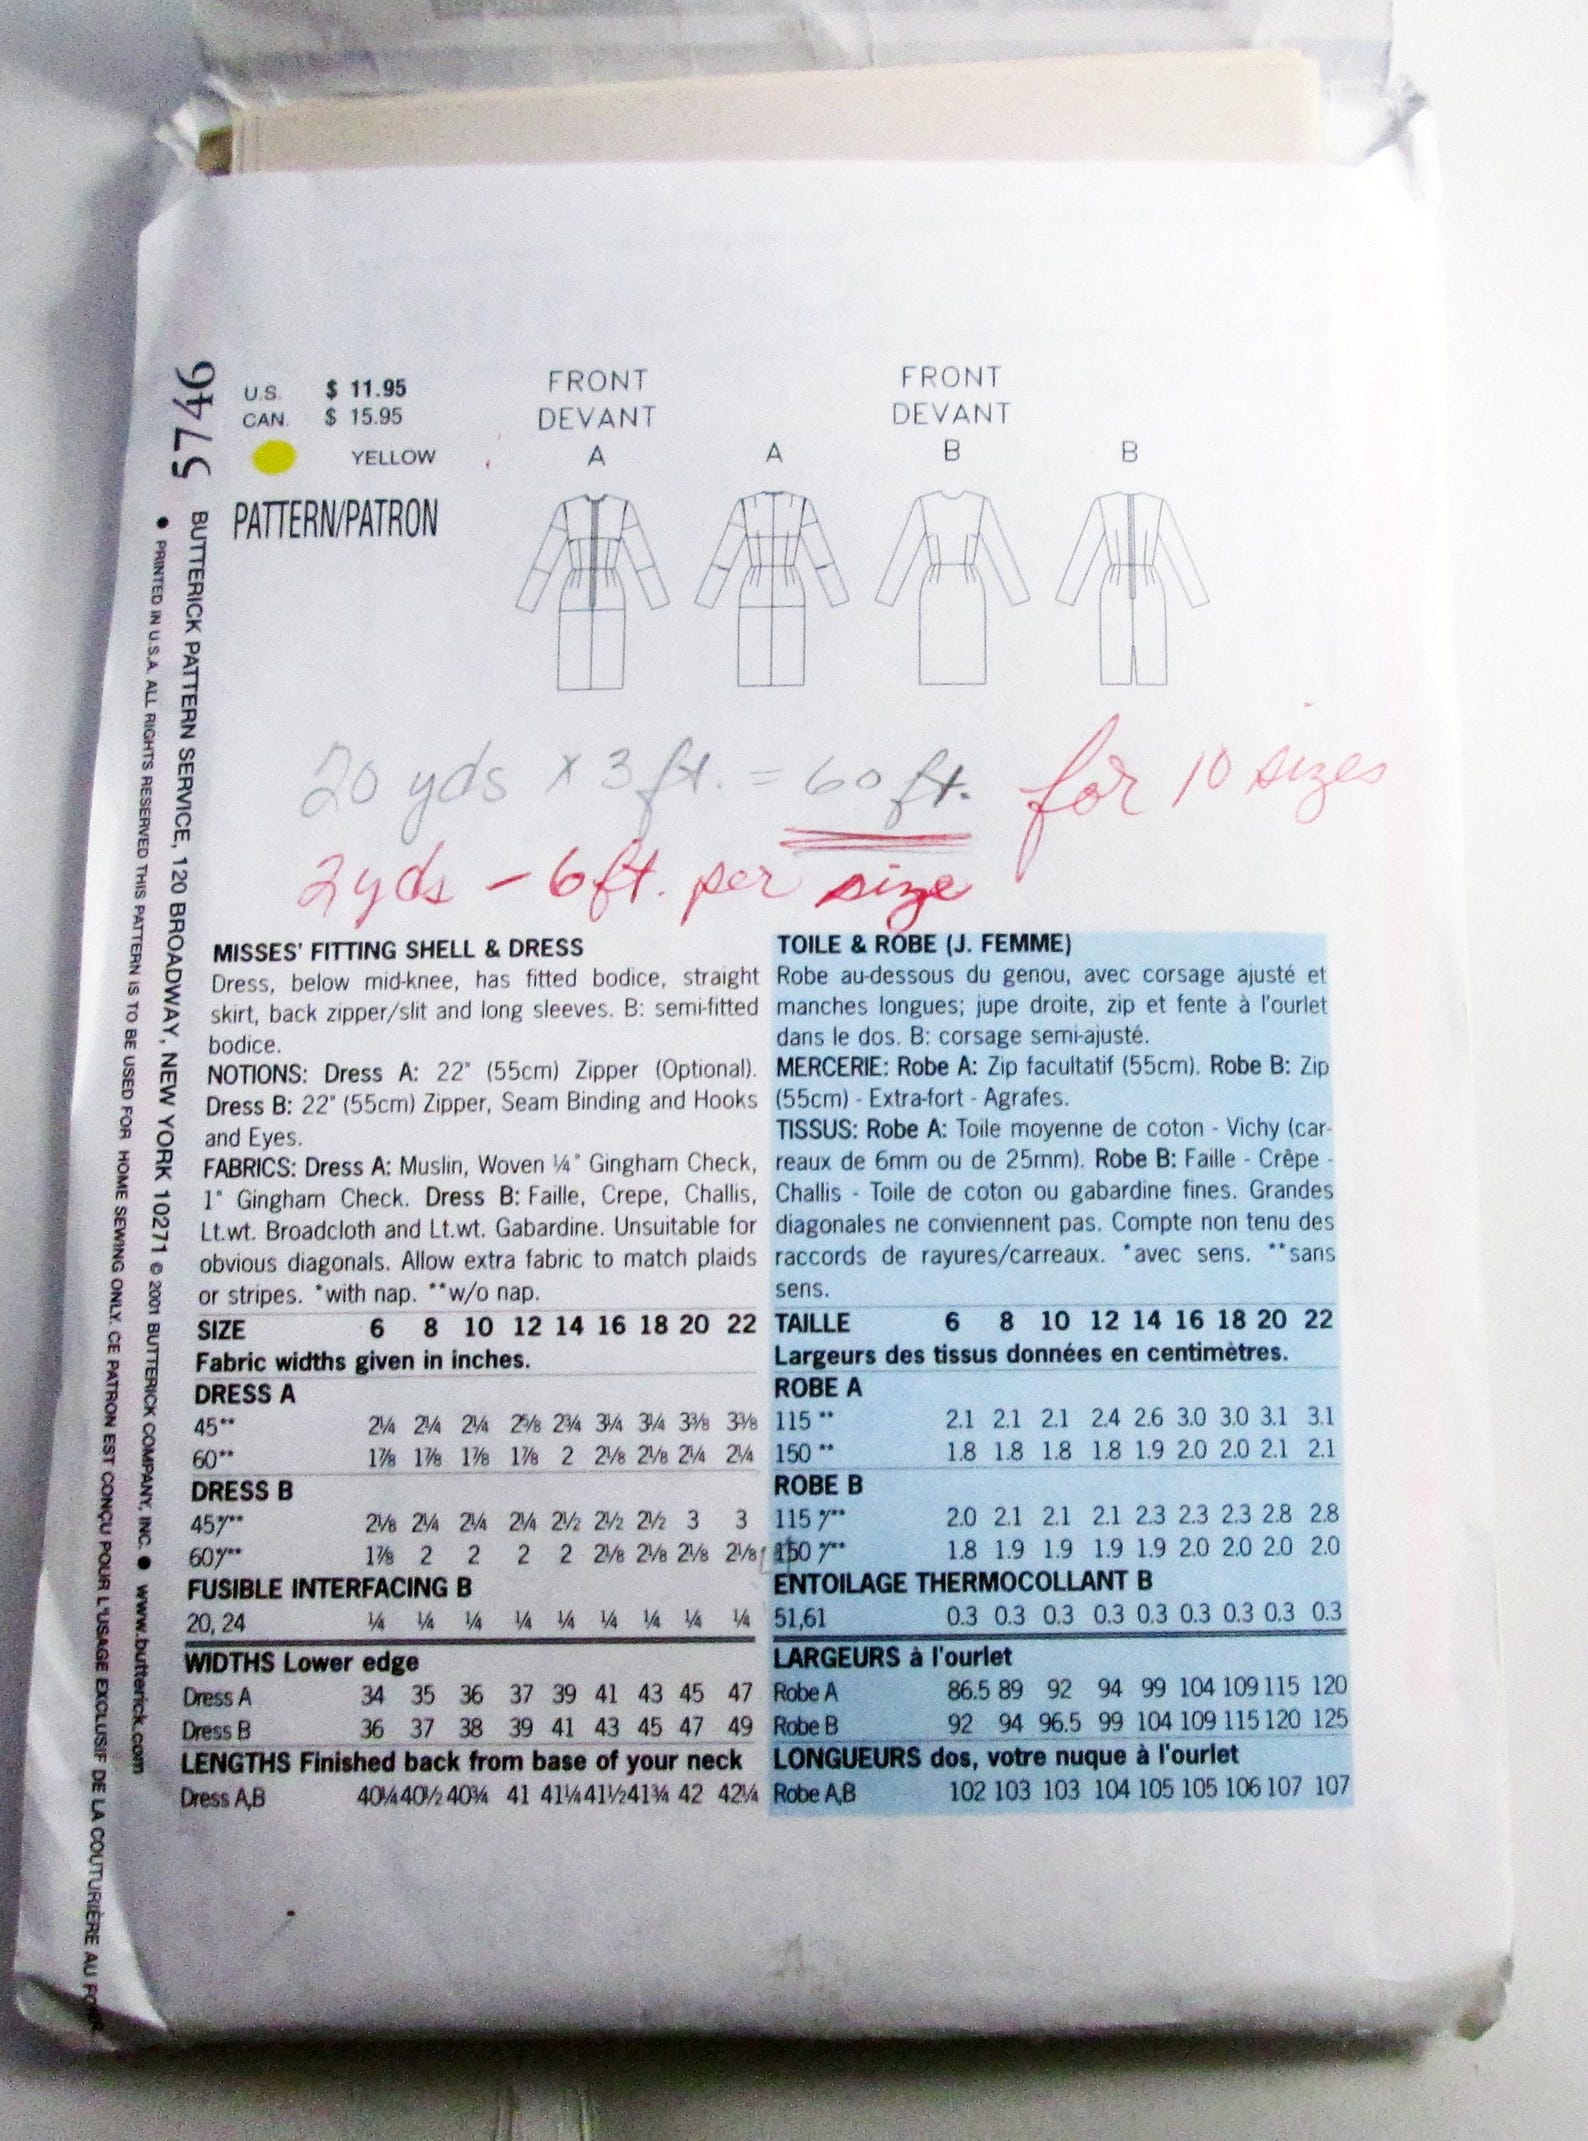 5746
BUTTERICK PATTERN SERVICE, 120 BROADWAY, NEW YORK 10271 © 2001 BUTTERICK COMPANY, INC. ● www.butterick.com
● PRINTED IN U.S.A. ALL RIGHTS RESERVED THIS PATTERN IS TO BE USED FOR HOME SEWING ONLY. CE PATRON EST CONÇU POUR L'USAGE EXCLUSIF DE LA COUTURIÈRE AU
U.S. $ 11.95
CAN. $ 15.95
YELLOW
PATTERN/PATRON
FRONT FRONT
DEVANT DEVANT
A A B B
20 yds x 3 ft. = 60 ft. for 10 sizes
2 yds - 6 ft. per size
MISSES' FITTING SHELL & DRESS
Dress, below mid-knee, has fitted bodice, straight
skirt, back zipper/slit and long sleeves. B: semi-fitted
bodice.
NOTIONS: Dress A: 22" (55cm) Zipper (Optional).
Dress B: 22" (55cm) Zipper, Seam Binding and Hooks
and Eyes.
FABRICS: Dress A: Muslin, Woven ¼" Gingham Check,
1" Gingham Check. Dress B: Faille, Crepe, Challis,
Lt.wt. Broadcloth and Lt.wt. Gabardine. Unsuitable for
obvious diagonals. Allow extra fabric to match plaids
or stripes. *with nap. **w/o nap.
SIZE 6 8 10 12 14 16 18 20 22
Fabric widths given in inches.
DRESS A
45** 2¼ 2¼ 2¼ 2⅝ 2¾ 3¼ 3¼ 3⅜ 3⅜
60** 1⅞ 1⅞ 1⅞ 1⅞ 2 2⅛ 2⅛ 2¼ 2¼
DRESS B
45*/** 2⅛ 2¼ 2¼ 2¼ 2½ 2½ 2½ 3 3
60*/** 1⅞ 2 2 2 2 2⅛ 2⅛ 2⅛ 2⅛
FUSIBLE INTERFACING B
20, 24 ¼ ¼ ¼ ¼ ¼ ¼ ¼ ¼ ¼
WIDTHS Lower edge
Dress A 34 35 36 37 39 41 43 45 47
Dress B 36 37 38 39 41 43 45 47 49
LENGTHS Finished back from base of your neck
Dress A,B 40¼ 40½ 40¾ 41 41¼ 41½ 41¾ 42 42¼
TOILE & ROBE (J. FEMME)
Robe au-dessous du genou, avec corsage ajusté et
manches longues; jupe droite, zip et fente à l'ourlet
dans le dos. B: corsage semi-ajusté.
MERCERIE: Robe A: Zip facultatif (55cm). Robe B: Zip
(55cm) - Extra-fort - Agrafes.
TISSUS: Robe A: Toile moyenne de coton - Vichy (car-
reaux de 6mm ou de 25mm). Robe B: Faille - Crêpe -
Challis - Toile de coton ou gabardine fines. Grandes
diagonales ne conviennent pas. Compte non tenu des
raccords de rayures/carreaux. *avec sens. **sans
sens.
TAILLE 6 8 10 12 14 16 18 20 22
Largeurs des tissus données en centimètres.
ROBE A
115 ** 2.1 2.1 2.1 2.4 2.6 3.0 3.0 3.1 3.1
150 ** 1.8 1.8 1.8 1.8 1.9 2.0 2.0 2.1 2.1
ROBE B
115 */** 2.0 2.1 2.1 2.1 2.3 2.3 2.3 2.8 2.8
150 */** 1.8 1.9 1.9 1.9 1.9 2.0 2.0 2.0 2.0
ENTOILAGE THERMOCOLLANT B
51,61 0.3 0.3 0.3 0.3 0.3 0.3 0.3 0.3 0.3
LARGEURS à l'ourlet
Robe A 86.5 89 92 94 99 104 109 115 120
Robe B 92 94 96.5 99 104 109 115 120 125
LONGUEURS dos, votre nuque à l'ourlet
Robe A,B 102 103 103 104 105 105 106 107 107